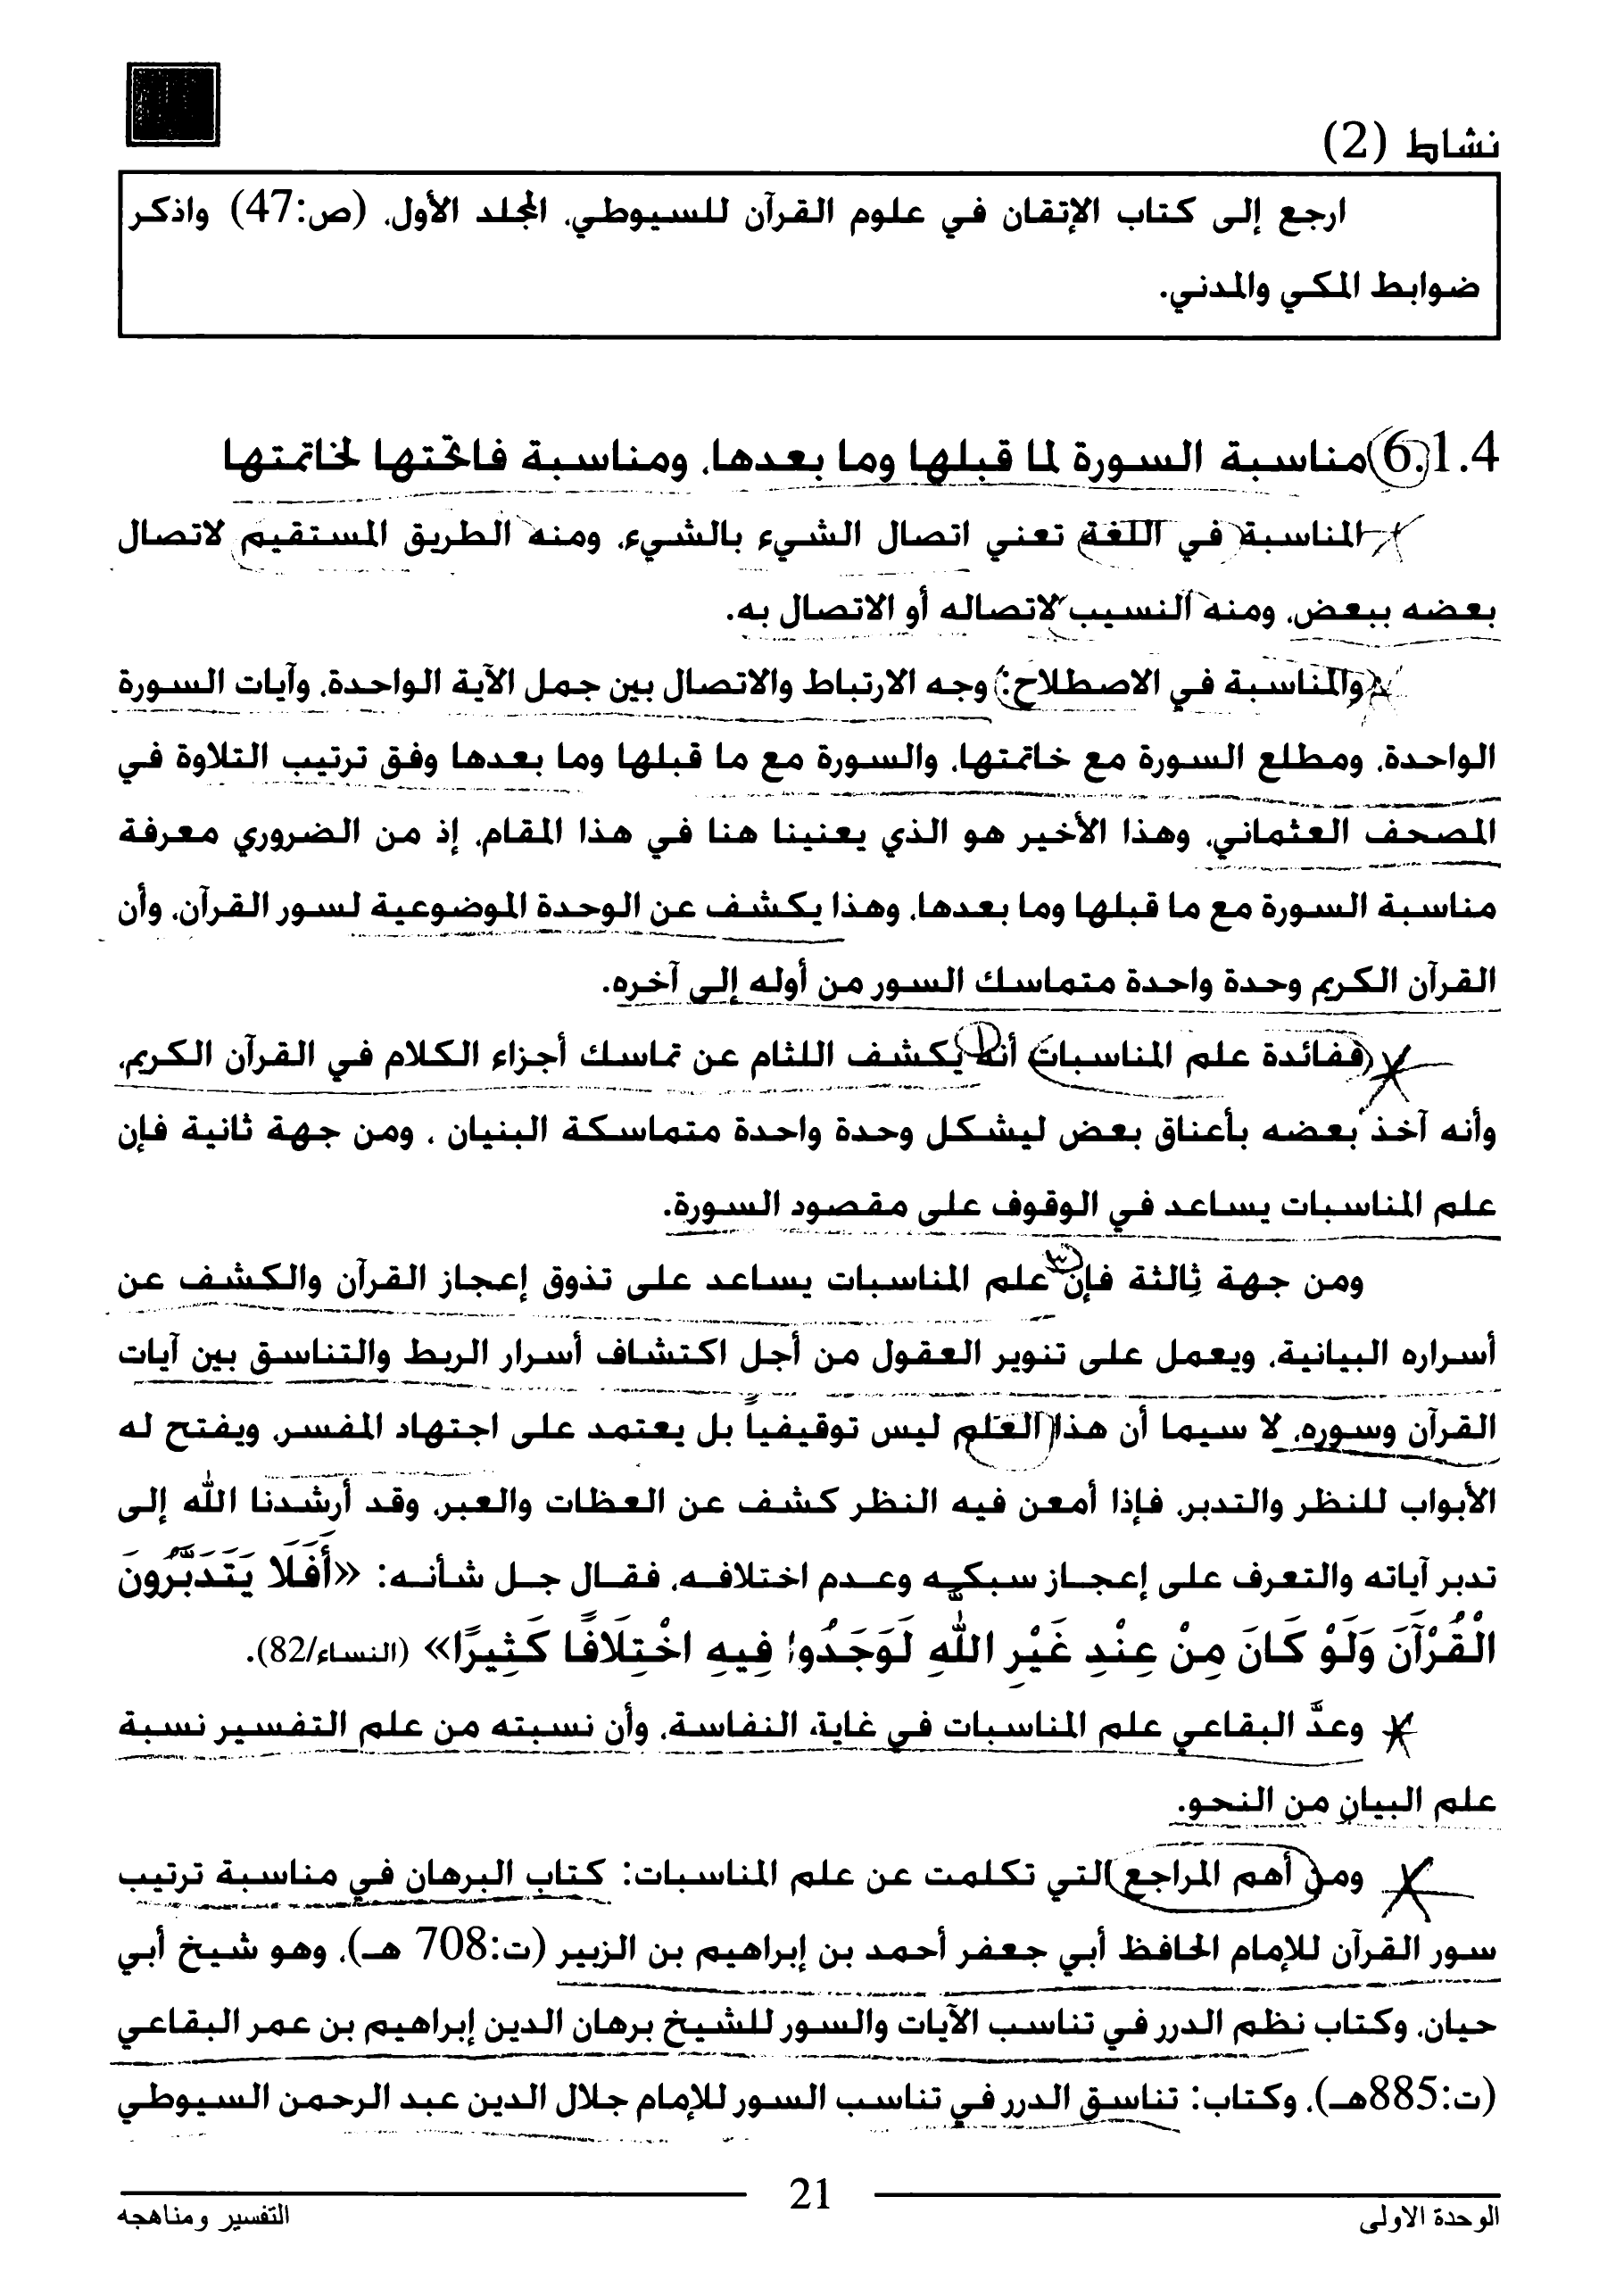 نشاط (2)
ارجع إلى كتاب الإتقان في علوم القرآن للسيوطي، المجلد الأول، (ص:47) واذكر
ضوابط المكي والمدني.
6.1.4 مناسبة السورة لما قبلها وما بعدها، ومناسبة فاتحتها لخاتمتها
المناسبة في اللغة تعني اتصال الشيء بالشيء، ومنه الطريق المستقيم لاتصال
بعضه ببعض، ومنه النسيب لاتصاله أو الاتصال به.
والمناسبة في الاصطلاح: وجه الارتباط والاتصال بين جمل الآية الواحدة، وآيات السورة
الواحدة، ومطلع السورة مع خاتمتها، والسورة مع ما قبلها وما بعدها وفق ترتيب التلاوة في
المصحف العثماني، وهذا الأخير هو الذي يعنينا هنا في هذا المقام، إذ من الضروري معرفة
مناسبة السورة مع ما قبلها وما بعدها، وهذا يكشف عن الوحدة الموضوعية لسور القرآن، وأن
القرآن الكريم وحدة واحدة متماسك السور من أوله إلى آخره.
ففائدة علم المناسبات أنه يكشف اللثام عن تماسك أجزاء الكلام في القرآن الكريم،
وأنه آخذ بعضه بأعناق بعض ليشكل وحدة واحدة متماسكة البنيان ، ومن جهة ثانية فإن
علم المناسبات يساعد في الوقوف على مقصود السورة.
ومن جهة ثالثة فإن علم المناسبات يساعد على تذوق إعجاز القرآن والكشف عن
أسراره البيانية، ويعمل على تنوير العقول من أجل اكتشاف أسرار الربط والتناسق بين آيات
القرآن وسوره، لا سيما أن هذا العلم ليس توقيفياً بل يعتمد على اجتهاد المفسر، ويفتح له
الأبواب للنظر والتدبر، فإذا أمعن فيه النظر كشف عن العظات والعبر، وقد أرشدنا الله إلى
تدبر آياته والتعرف على إعجاز سبكه وعدم اختلافه، فقال جل شأنه: «أَفَلَا يَتَدَبَّرُونَ
الْقُرْآنَ وَلَوْ كَانَ مِنْ عِنْدِ غَيْرِ اللَّهِ لَوَجَدُوا فِيهِ اخْتِلَافًا كَثِيرًا» (النساء/82).
وعدَّ البقاعي علم المناسبات في غاية النفاسة، وأن نسبته من علم التفسير نسبة
علم البيان من النحو.
ومن أهم المراجع التي تكلمت عن علم المناسبات: كتاب البرهان في مناسبة ترتيب
سور القرآن للإمام الحافظ أبي جعفر أحمد بن إبراهيم بن الزبير (ت:708 هـ)، وهو شيخ أبي
حيان، وكتاب نظم الدرر في تناسب الآيات والسور للشيخ برهان الدين إبراهيم بن عمر البقاعي
(ت:885هـ)، وكتاب: تناسق الدرر في تناسب السور للإمام جلال الدين عبد الرحمن السيوطي
21
الوحدة الاولى
التفسير ومناهجه